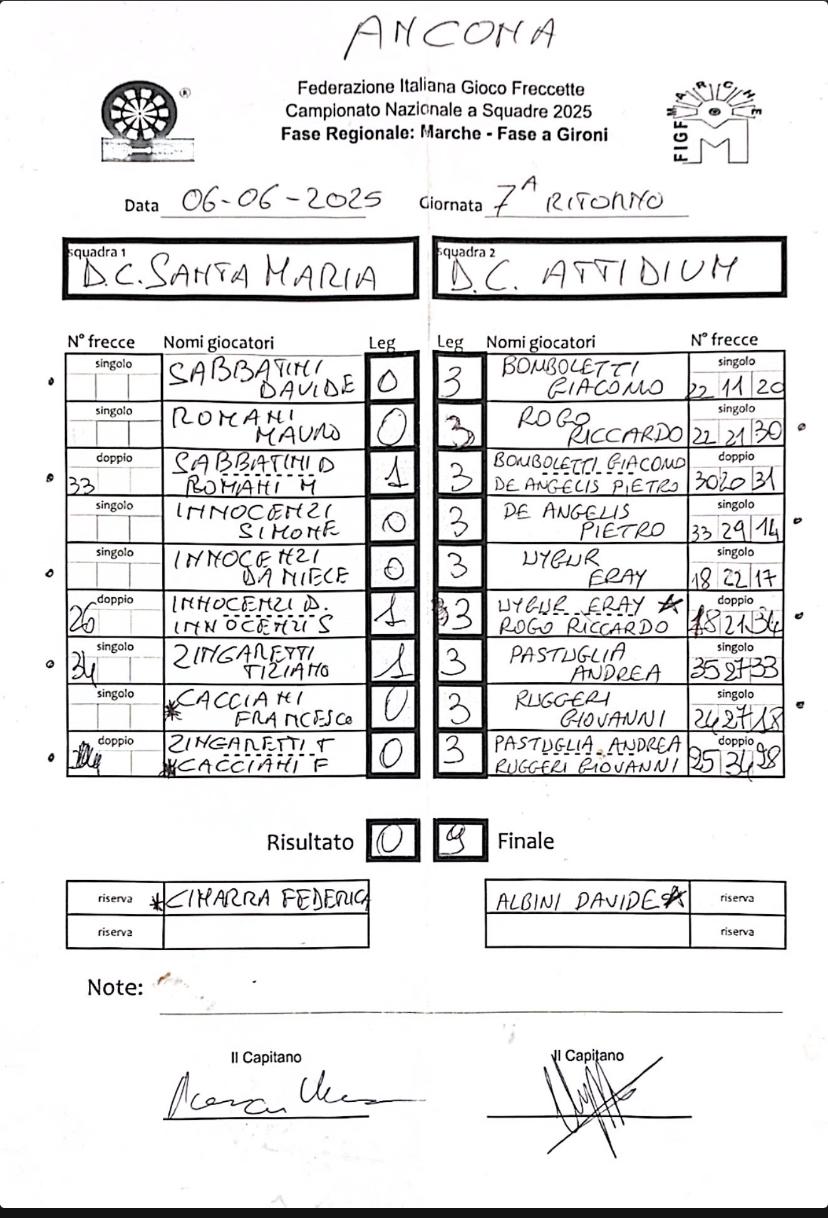 ANCONA
Federazione Italiana Gioco Freccette
Campionato Nazionale a Squadre 2025
Fase Regionale: Marche - Fase a Gironi
MARCHE
FIGF
M
Data 06-06-2025 Giornata 7A RITORNO
squadra 1 squadra 2
D.C. SANTA MARIA D.C. ATTIDIUM
N° frecce Nomi giocatori Leg Leg Nomi giocatori N° frecce
singolo SABBATINI 0 3 BONBOLETTI singolo
DAVIDE GIACOMO 22 11 20
singolo ROMANI 0 3 ROGO singolo
MAURO RICCARDO 22 21 30
doppio SABBATINI D 1 3 BONBOLETTI GIACOMO doppio
33 ROMANI M DE ANGELIS PIETRO 30 20 31
singolo INNOCENZI 0 3 DE ANGELIS singolo
SIMONE PIETRO 33 29 14
singolo INNOCENZI 0 3 UYGUR singolo
DANIELE ERAY 18 22 17
doppio INNOCENZI D. 1 3 UYGUR ERAY doppio
26 INNOCENZI S ROGO RICCARDO 18 21 34
singolo ZINGARETTI 1 3 PASTUGLIA singolo
34 TIZIANO ANDREA 35 27 33
singolo *CACCIANI 0 3 RUGGERI singolo
FRANCESCO GIOVANNI 24 27 18
doppio ZINGARETTI T 0 3 PASTUGLIA ANDREA doppio
*CACCIANI F RUGGERI GIOVANNI 25 34 28
Risultato 0 9 Finale
riserva *CIMARRA FEDERICA ALBINI DAVIDE riserva
riserva riserva
Note:
Il Capitano Il Capitano